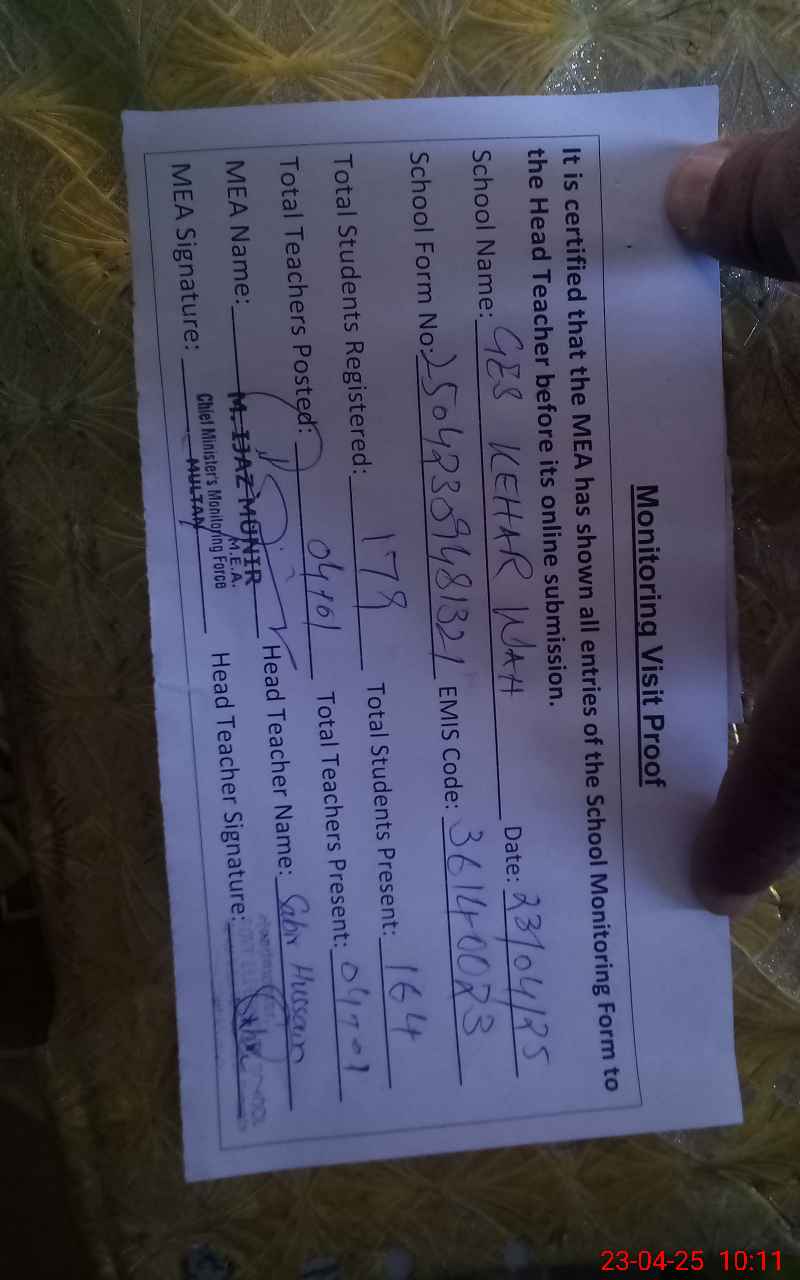 Monitoring Visit Proof
It is certified that the MEA has shown all entries of the School Monitoring Form to
the Head Teacher before its online submission.
School Name: GES KEHAR WAH Date: 23/04/25
School Form No: 25042309481321 EMIS Code: 36140023
Total Students Registered: 179 Total Students Present: 164
Total Teachers Posted: 04+01 Total Teachers Present: 04+01
MEA Name: M. IJAZ MUNIR Head Teacher Name: Sabir Hussain
M.E.A.
Chief Minister's Monitoring Force
MEA Signature: MULTAN Head Teacher Signature:
23-04-25 10:11